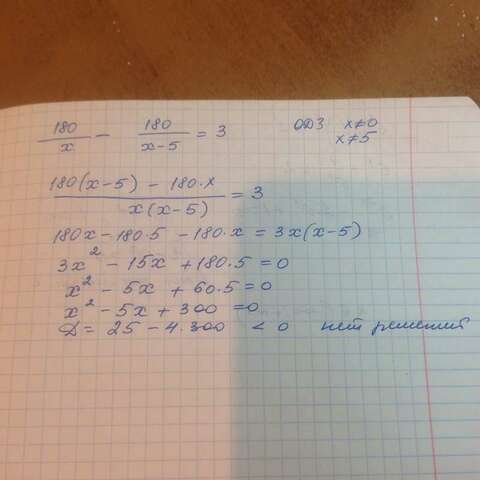 180/x − 180/(x−5) = 3 ОДЗ x≠0
x≠5
(180(x−5) − 180·x)/(x(x−5)) = 3
180x − 180·5 − 180·x = 3x(x−5)
3x² − 15x + 180·5 = 0
x² − 5x + 60·5 = 0
x² − 5x + 300 = 0
Д = 25 − 4·300 < 0 нет решений